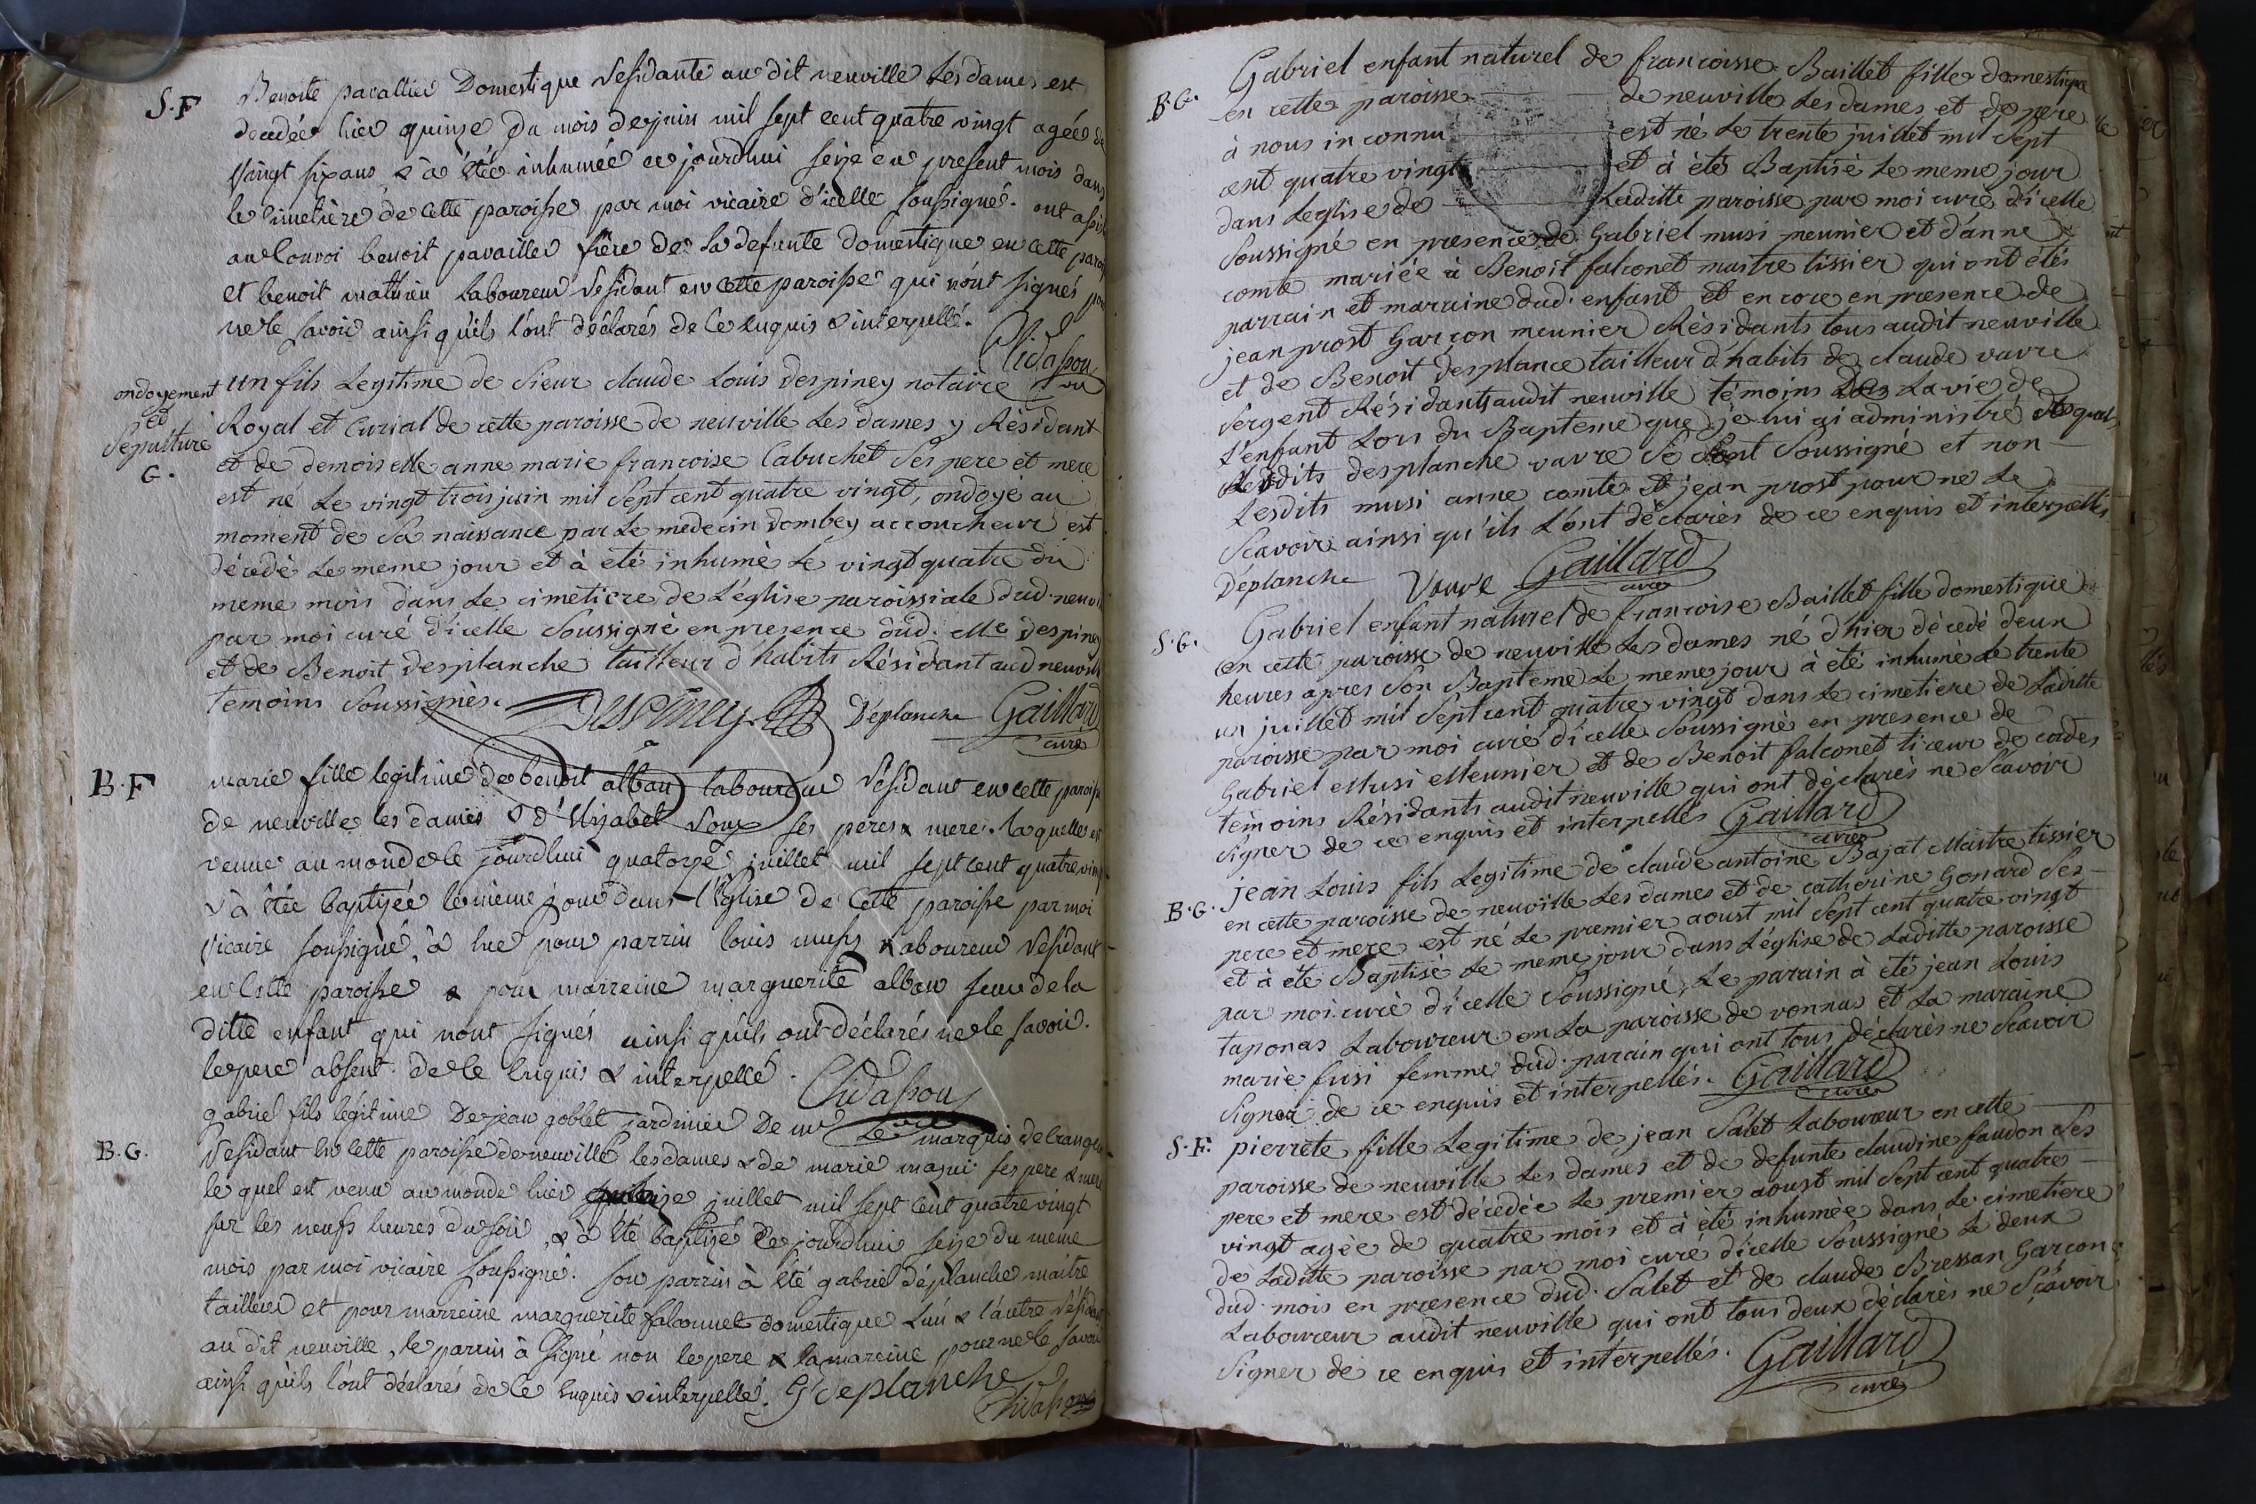 S.F
Benoite pavallier Domestique residante au dit neuville les dames est
decedée hier quinze du mois de juin mil sept cent quatre vingt agée de
vingt six ans & à étée inhumée ce jourdhui seize du present mois dans
le cimetière de cette paroisse par moi vicaire d'icelle soussigné. ont assisté
au convoi benoit pavallier frère de la defunte domestique en cette paroi
et benoit mathieu laboureur residant en cette paroisse qui n'ont signés pour
ne le savoir ainsi qu'ils l'ont déclarés de ce enquis & interpellé.
ondoyement
et
Sepulture
G.
un fils Legitime de sieur claude Louis despiney notaire
Royal et Curial de cette paroisse de neuville Les dames y Résidant
et de demoiselle anne marie francoise Cabuchet ses pere et mere
est né Le vingt trois juin mil sept cent quatre vingt, ondoyé au
moment de sa naissance par Le medecin dombey accoucheur est
décedé Le meme jour et à été inhumé Le vingt quatre du
meme mois dans Le cimetiere de L'église paroissiale dud. neuvi
par moi curé d'icelle soussigné en presence dud. Me despiney
et de Benoit desplanche tailleur d'habits Résidant aud neuville
temoins soussignés.
Despiney Déplanche Gaillard
curé
B.F
marie fille legitime de benoit alban laboureur residant en cette paroisse
de neuville les dames & d'Elizabet roux ses peres & mere. laquelle est
venue au monde le jourdhui quatorze juillet mil sept cent quatre vingt
& à étée baptizée le même jour dans l'Eglise de cette paroisse par moi
vicaire soussigné, à hue pour parrin louis mussy laboureur residant
en cette paroisse & pour marreine marguerite alban seur de la
ditte enfant qui nont signés ainsi qu'ils ont déclarés ne le savoir.
le pere absent. de ce enquis & interpellé.
B.G.
gabriel fils legitime De jean goblet jardinier De mr Le marquis de
residant en cette paroisse de neuville les dames & de marie ses pere & mere
le quel est venu au monde hier quinze juillet mil sept cent quatre vingt
sur les neufs heures du soir, & à été baptizé ce jourdhui seize du meme
mois par moi vicaire soussigné. son parrin à été gabriel déplanche maitre
tailleur et pour marreine marguerite falconnet domestique L'un & l'autre residant
au dit neuville, le parrin à signé non le pere & la mareine pour ne le savoir
ainsi qu'ils l'ont déclarés de ce enquis & interpellé. G deplanche
B.G.
Gabriel enfant naturel de francoisse Baillet fille domestique
en cette paroisse de neuville Les dames et de pere
à nous inconnu est né Le trente juillet mil sept
cent quatre vingt et à été Baptisé Le meme jour
dans Leglise de Laditte paroisse par moi curé d'icelle
soussigné en presence de Gabriel musi meunier et d'anne
comte mariée à Benoit falconet maitre tissier qui ont étés
parrain et maraine dud. enfant et encore en presence de
jean prost Garçon meunier Résidants tous audit neuville
et de Benoit desplance tailleur d'habits de claude vavre
sergent Résidants audit neuville témoins de La vie de
L'enfant Lors du Bapteme que je lui ai administré desquels
Lesdits desplanche vavre se sont soussigné et non
Lesdits musi anne comte et jean prost pour ne Le
scavoir ainsi qu'ils L'ont déclarés de ce enquis et interpellés
Déplanche Vavre Gaillard
curé
S.G.
Gabriel enfant naturel de francoise Baillet fille domestique
en cette paroisse de neuville Les dames né d'hier décedé deux
heures apres son Bapteme Le meme jour à été inhumé Le trente
un juillet mil sept cent quatre vingt dans Le cimetiere de Laditte
paroisse par moi curé d'icelle soussigné en presence de
Gabriel Musi Meunier et de Benoit falconet tisceur de
temoins Résidants audit neuville qui ont déclarés ne scavoir
signer de ce enquis et interpellés Gaillard
curé
B.G.
jean Louis fils Legitime de claude antoine Bajat Maitre tissier
en cette paroisse de neuville Les dames et de catherine Gonard ses
pere et mere est né Le premier aoust mil sept cent quatre vingt
et à été Baptisé Le meme jour dans L'église de Laditte paroisse
par moi curé d'icelle soussigné, Le parain à été jean Louis
taponas Laboureur en La paroisse de vonnas et La maraine
marie fusi femme dud. parain qui ont tous déclarés ne scavoir
signer de ce enquis et interpellés. Gaillard
curé
S.F.
pierrete fille Legitime de jean Salet Laboureur en cette
paroisse de neuville Les dames et de defunte claudine faudon ses
pere et mere est décedée Le premier aoust mil sept cent quatre
vingt agée de quatre mois et à été inhumée dans Le cimetiere
de Laditte paroisse par moi curé d'icelle soussigné Le deux
dud. mois en presence dud. Salet et de claude Bressan Garçon
Laboureur audit neuville qui ont tous deux déclarés ne sçavoir
signer de ce enquis et interpellés. Gaillard
curé